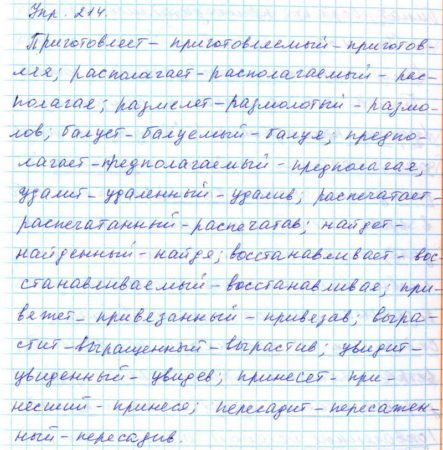 Упр. 214.
Приготовляет – приготовляемый – приготов-
ляя; располагает – располагаемый – рас-
полагая; размелет – размолотый – размо-
лов; балует – балуемый – балуя; предпо-
лагает – предполагаемый – предполагая;
удалит – удаленный – удалив; распечатает –
распечатанный – распечатав; найдет –
найденный – найдя; восстанавливает – вос-
станавливаемый – восстанавливая; при-
вяжет – привязанный – привязав; выра-
стит – выращенный – вырастив; увидит –
увиденный – увидев; принесет – при-
несший – принеся; пересадит – пересажен-
ный – пересадив.